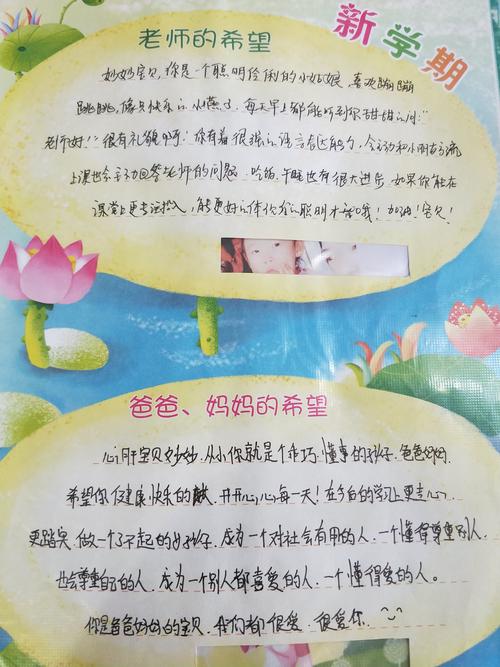 新学期
老师的希望
妙妙宝贝，你是一个聪明伶俐的小姑娘，喜欢蹦蹦
跳跳，像只快乐的小燕子，每天早上都能听到你甜甜的问：“
老师好！”很有礼貌啊！你有着很强的语言表达能力，会主动和小朋友交流
上课也会主动回答老师的问题，吃饭、午睡也有很大进步，如果你能在
课堂上更专注投入，能更好的体你的聪明才智哦！加油！宝贝！
爸爸、妈妈的希望
心肝宝贝妙妙，从小你就是个乖巧、懂事的孩子，爸爸妈妈
希望你健康快乐的，开开心心每一天！在今后的学习上更走心
更踏实，做一个了不起的好孩子，成为一个对社会有用的人，一个懂得尊重别人，
也会尊重自己的人，成为一个别人都喜爱的人，一个懂得爱的人。
你是爸爸妈妈的宝贝，我们都很爱，很爱你